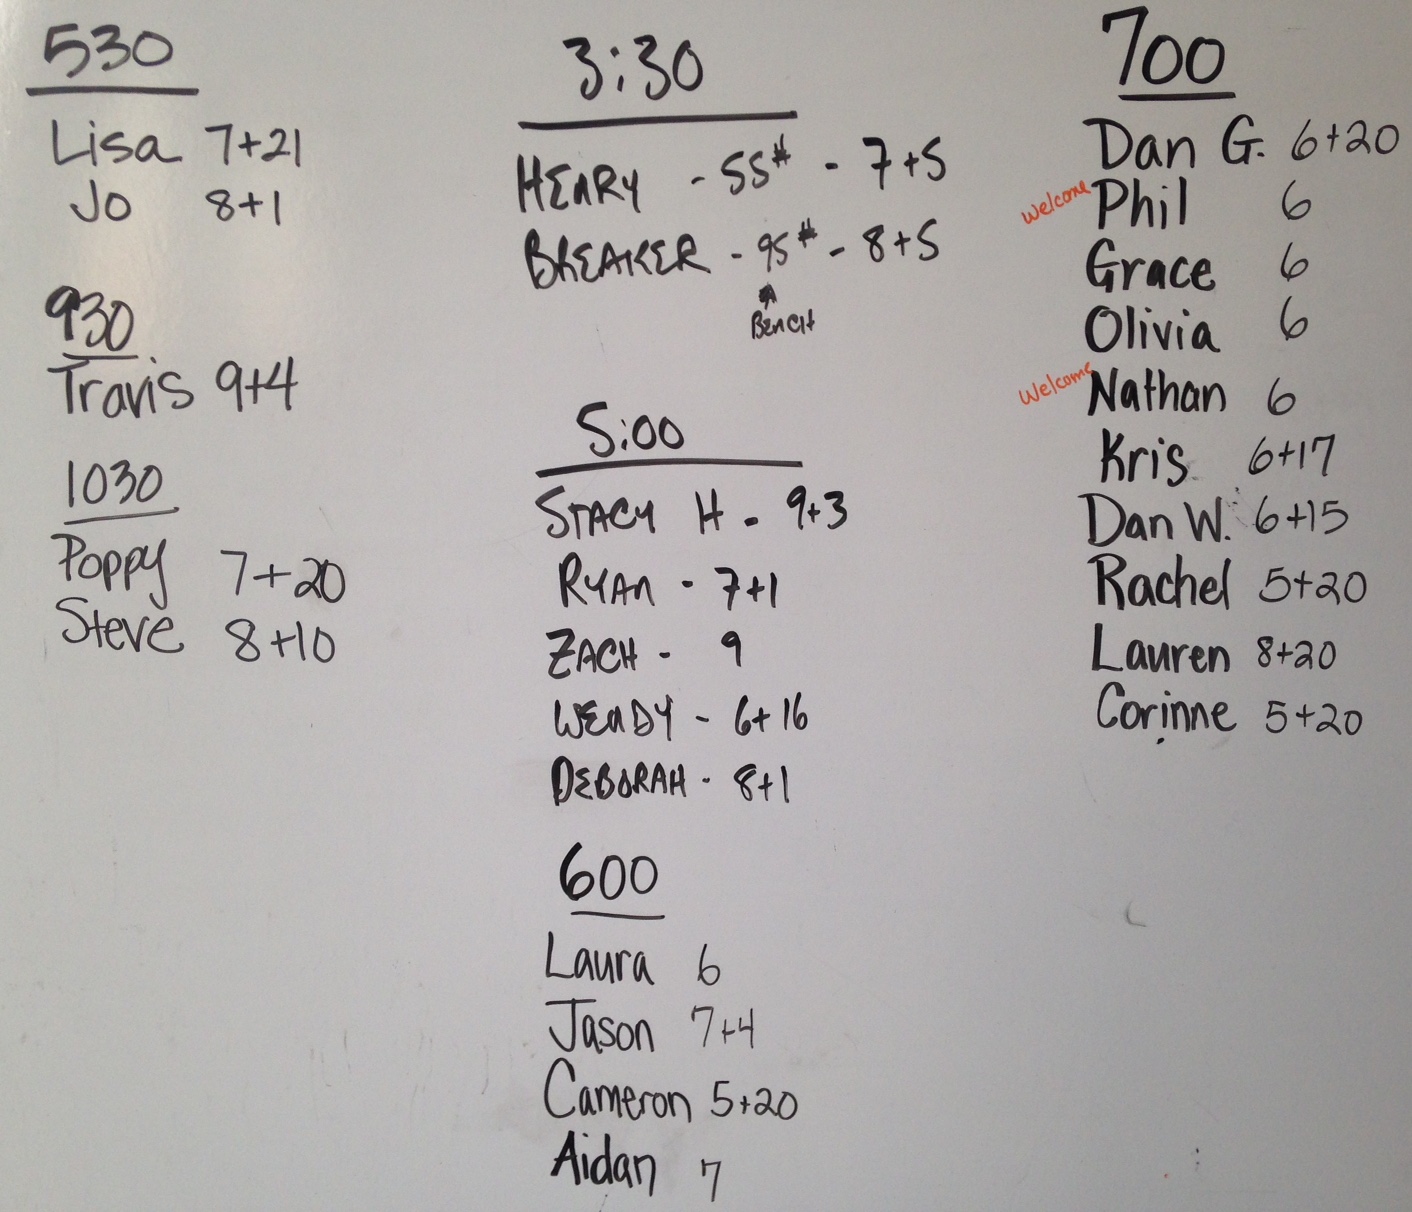 530
Lisa 7+21
Jo 8+1
930
Travis 9+4
1030
Poppy 7+20
Steve 8+10
3:30
HENRY - 55# - 7+5
BREAKER - 95# - 8+5
BENCH
5:00
STACY H - 9+3
RYAN - 7+1
ZACH - 9
WENDY - 6+16
DEBORAH - 8+1
600
Laura 6
Jason 7+4
Cameron 5+20
Aidan 7
700
Dan G. 6+20
welcome Phil 6
Grace 6
Olivia 6
Welcome Nathan 6
Kris 6+17
Dan W. 6+15
Rachel 5+20
Lauren 8+20
Corinne 5+20